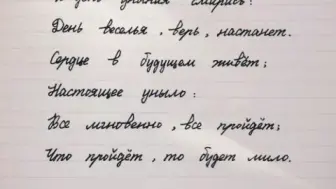 День веселья, верь, настанет.
Сердце в будущем живёт;
Настоящее уныло:
Все мгновенно, все пройдёт;
Что пройдёт, то будет мило.